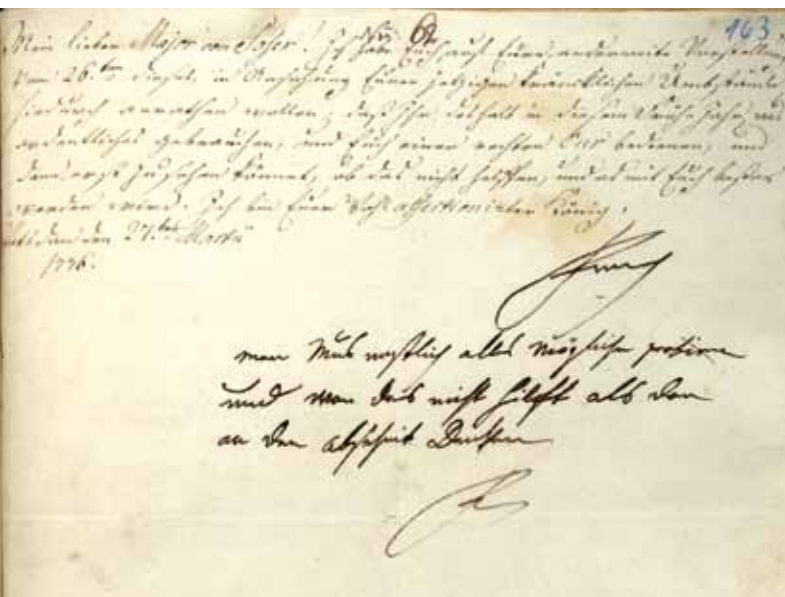 62 163.
Mein lieber Major von Poser! Ich habe Euch, auf Eure anderweite Vorstellung
vom 26.ten dieses, in Ansehung Eurer jetzigen kräncklichen Umbstände
hiedurch anrathen wollen, daß Ihr deshalb in diesem Früh-Jahr, was
ordentliches gebrauchen, und Euch einer rechten Cur bedienen, und
dann erst zusehen könnet, ob das nicht helffen, und es mit Euch besser
werden wird. Ich bin Euer wohl affectionirter König.
Potsdam den 27.ten Martii
1776.
man Mus erstlich alles Mögliche probiren
und wan das nicht hilft als dan
an den abscheit Denken